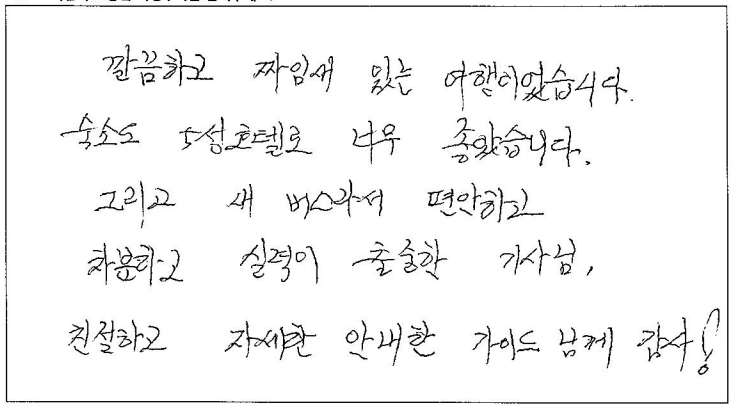 깔끔하고 짜임새 있는 여행이었습니다.
숙소도 5성호텔로 너무 좋았습니다.
그리고 새 버스라서 편안하고
차분하고 실력이 출출한 기사님,
친절하고 자세한 안내한 가이드 님께 감사!